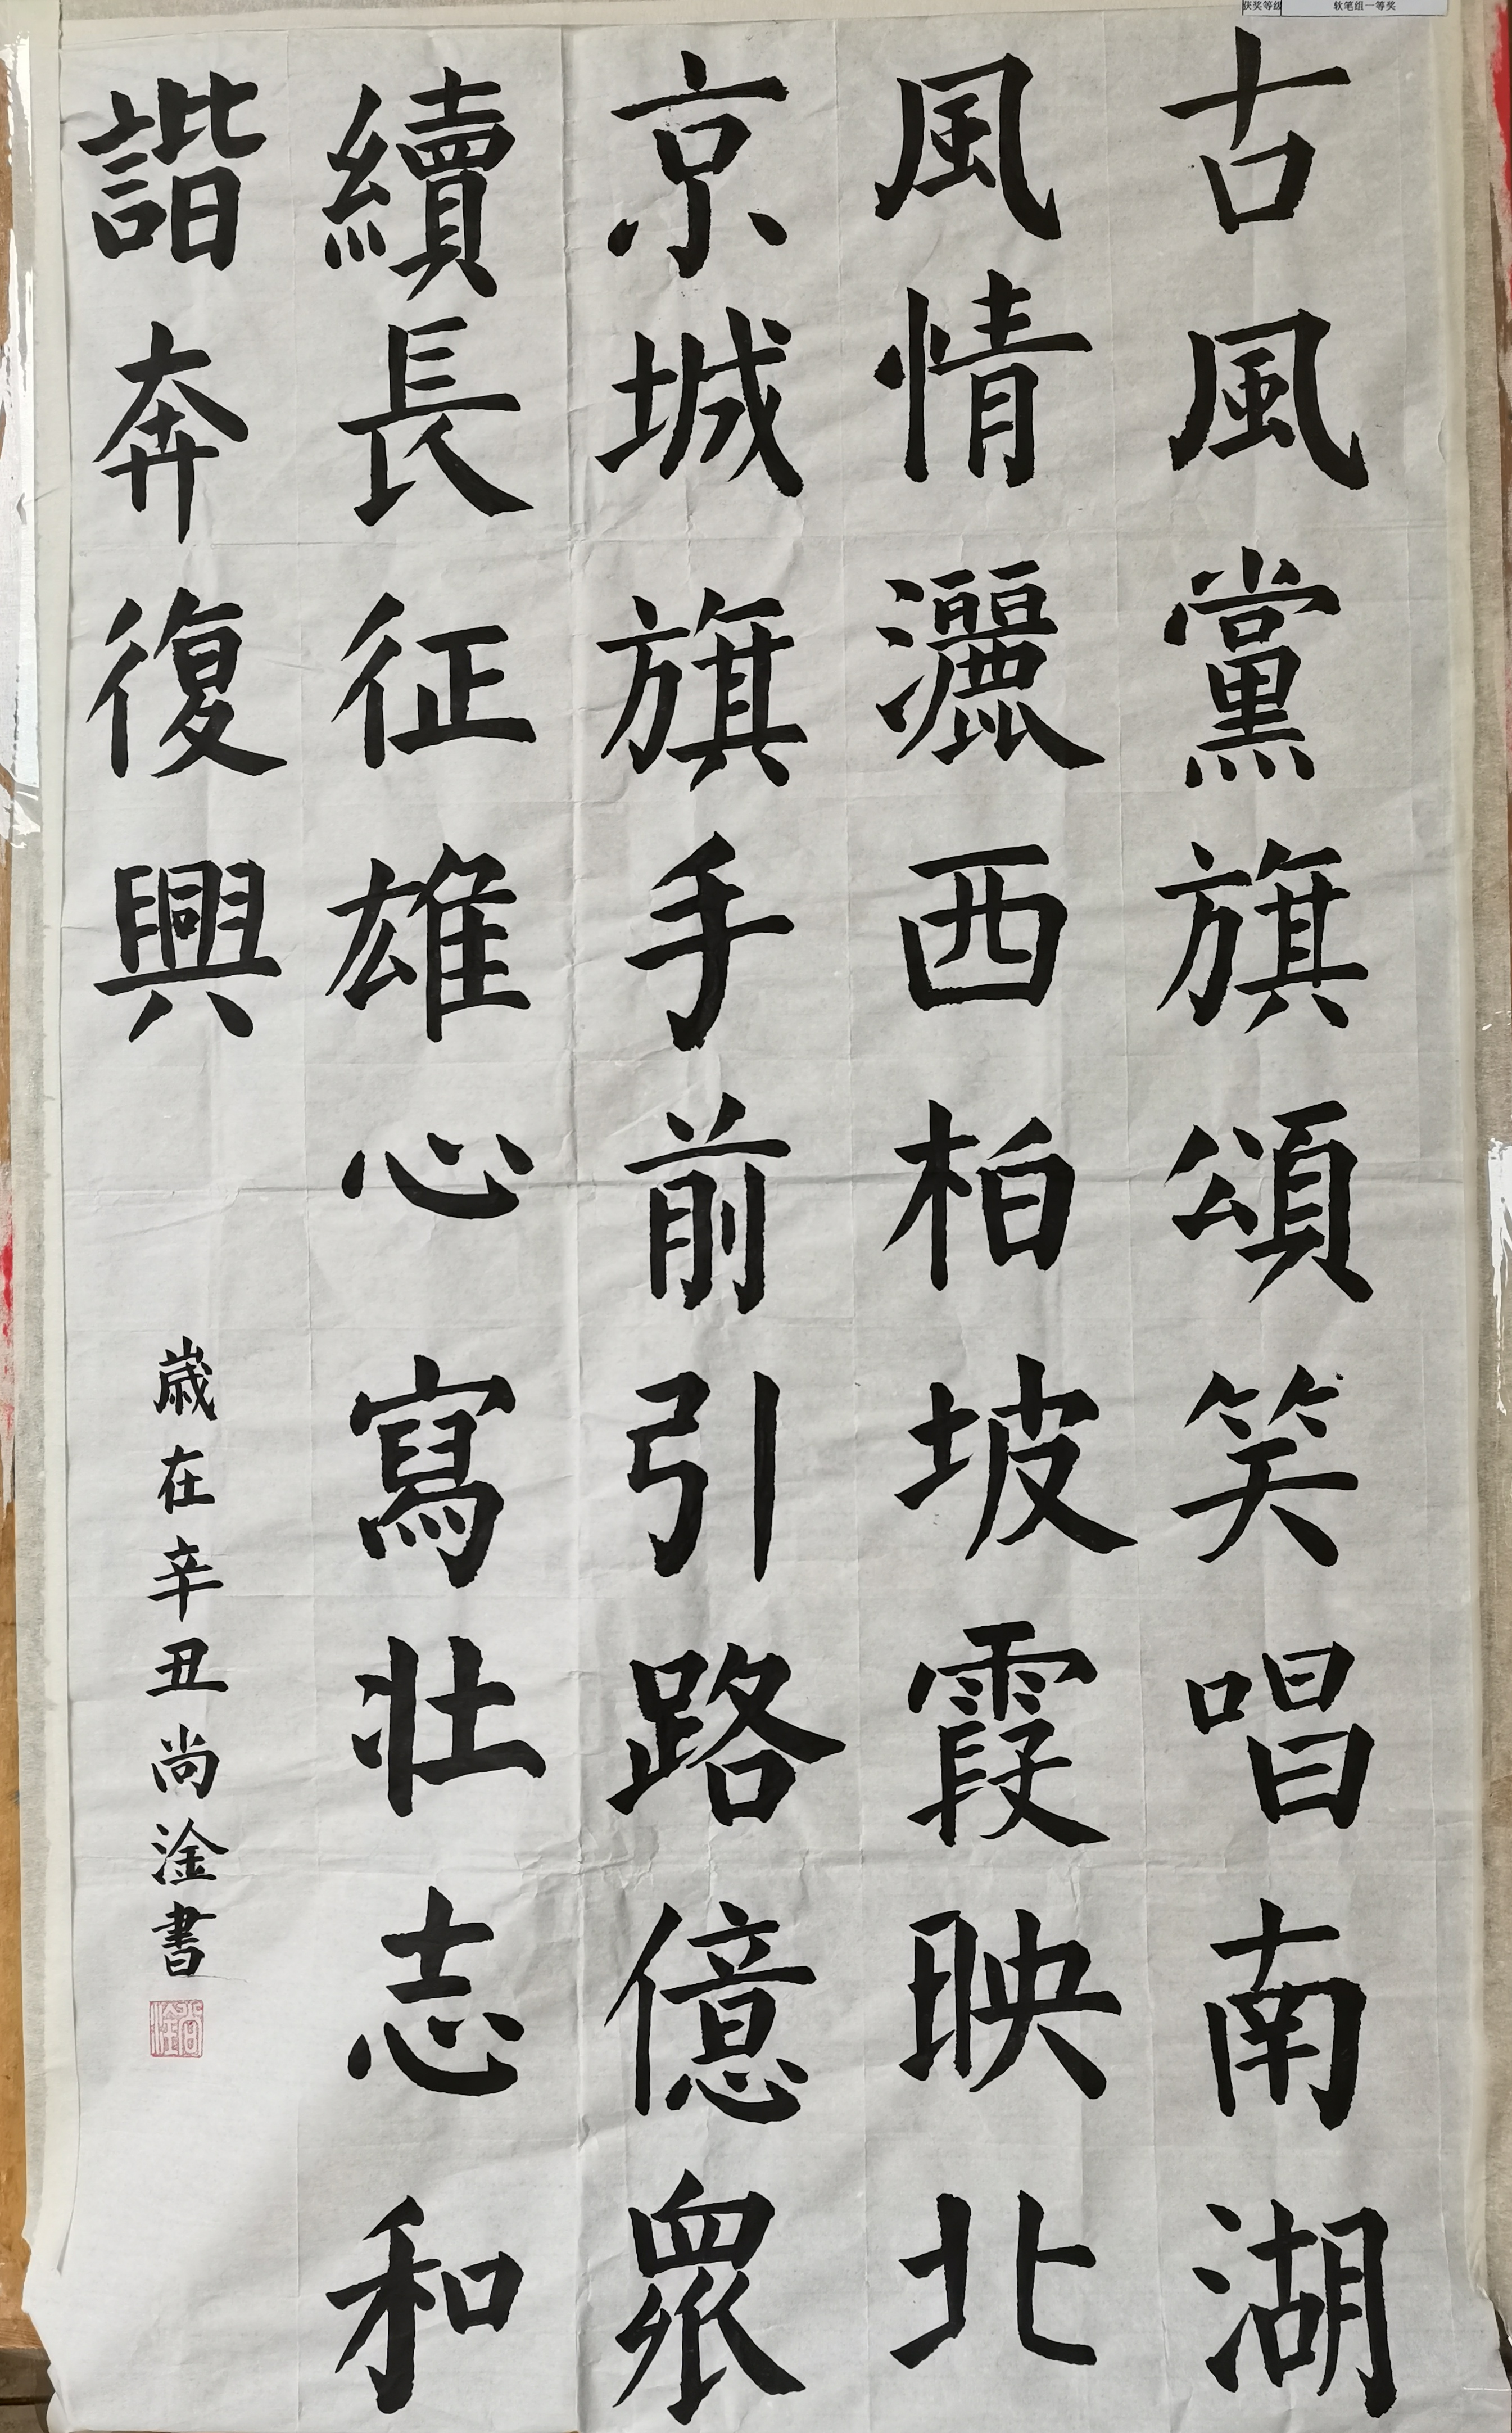 获奖等级 软笔组一等奖
古風黨旗頌笑唱南湖
風情灑西柏坡霞映北
京城旗手前引路億眾
續長征雄心寫壯志和
諧奔復興
歲在辛丑尚淦書
尚淦